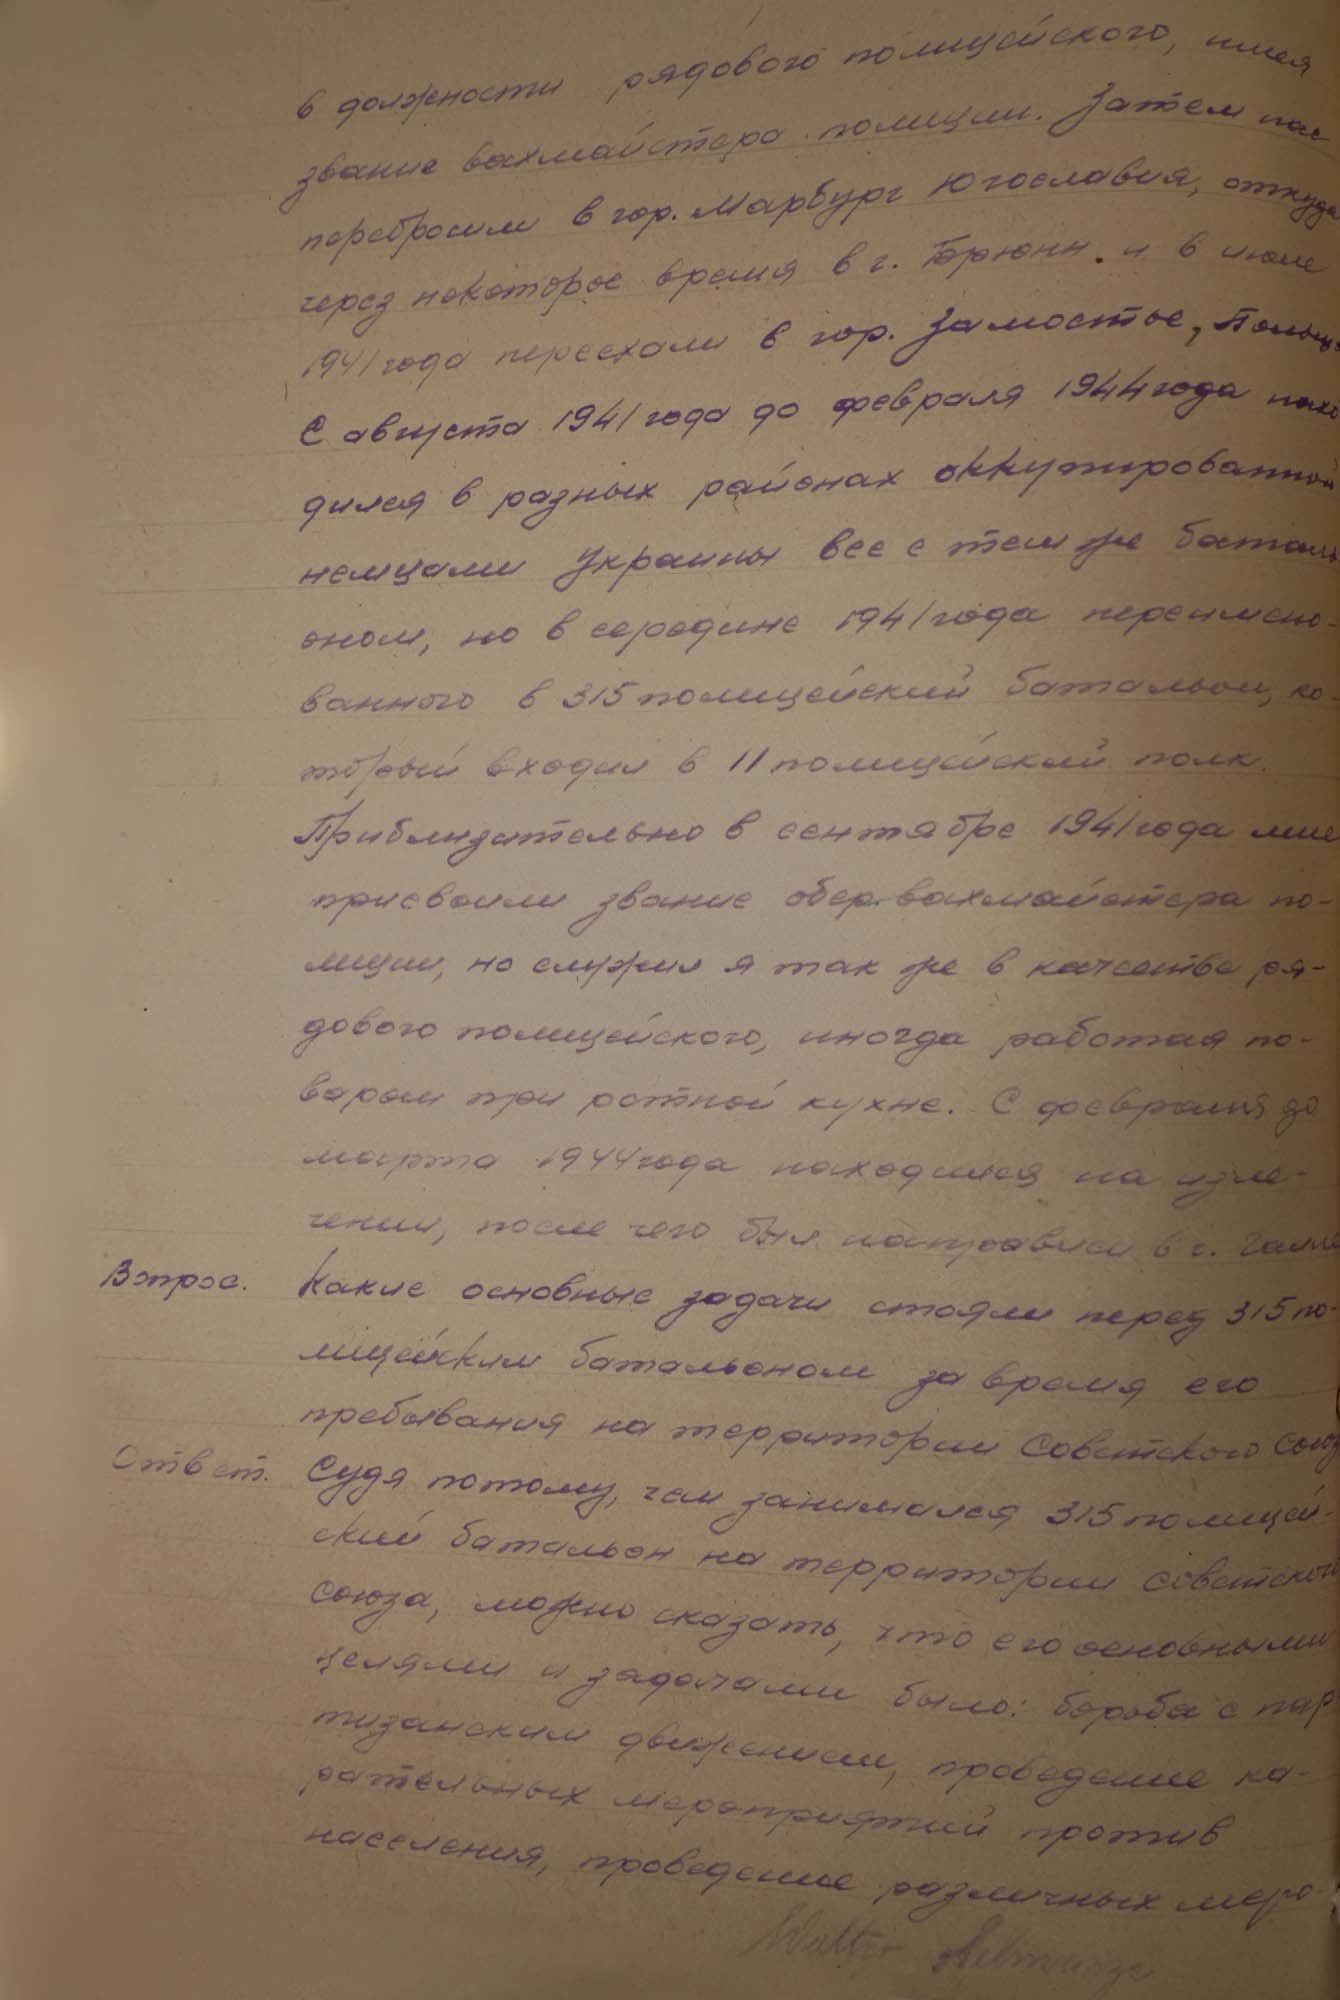 в должности рядового полицейского, имея
звание вахмайстера полиции. Затем нас
перебросили в гор. Марбург Югославия, откуда
через некоторое время в г. Брюнн. и в июле
1941 года переехали в гор. Замостье, Польша
С августа 1941 года до февраля 1944 года нахо
дился в разных районах оккупированной
немцами Украины все с тем же баталь
оном, но в середине 1941 года переимено-
ванного в 315 полицейский батальон, ко
торый входил в 11 полицейский полк.
Приблизительно в сентябре 1941 года мне
присвоили звание обер-вахмайстера по-
лиции, но служил я так же в качестве ря-
дового полицейского, иногда работая по-
варом при ротной кухне. С февраля до
марта 1944 года находился на изле-
чении, после чего был направлен в г. Галле
Вопрос. Какие основные задачи стояли перед 315 по-
лицейским батальоном за время его
пребывания на территории Советского Союза
Ответ. Судя потому, чем занимался 315 полицей-
ский батальон на территории Советского
Союза, можно сказать, что его основными
целями и задачами было: борьба с пар
тизанским движением, проведение ка-
рательных мероприятий против
населения, проведение различных меро-
Walter